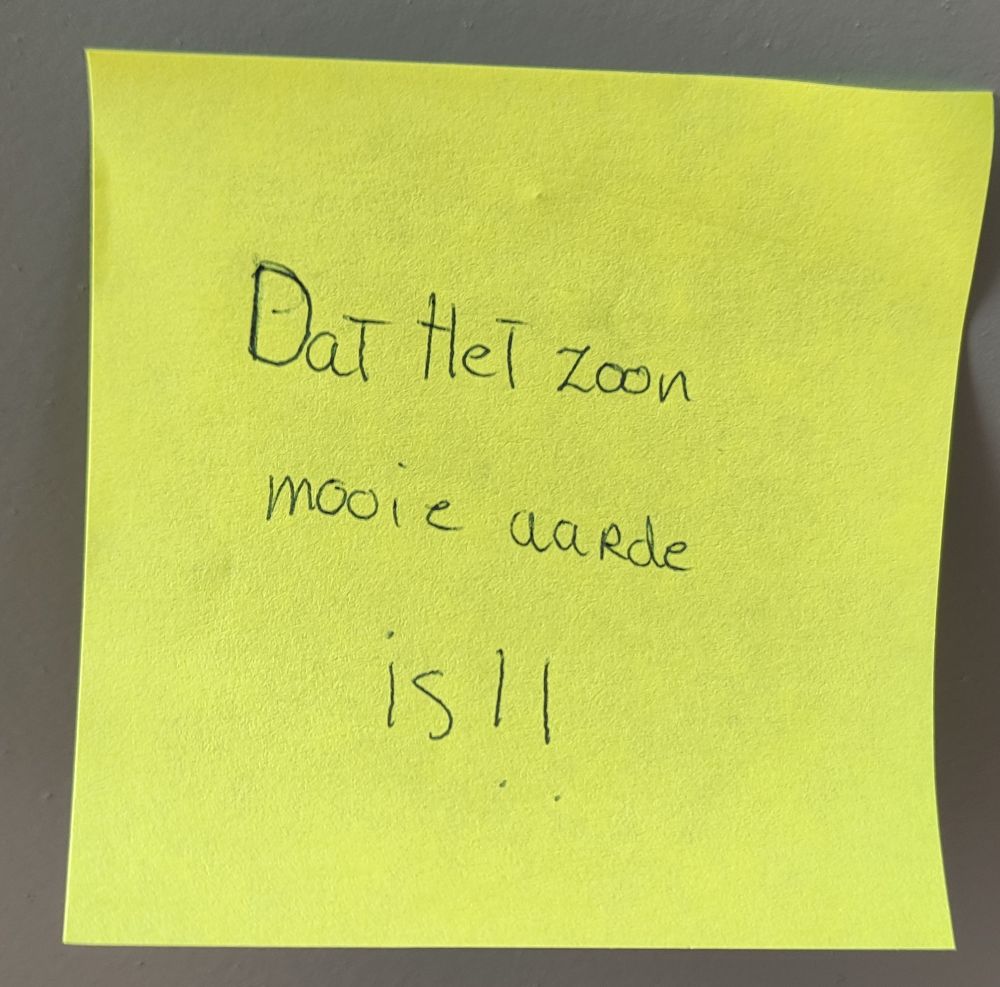 Dat Het zoon
mooie aarde
is!!